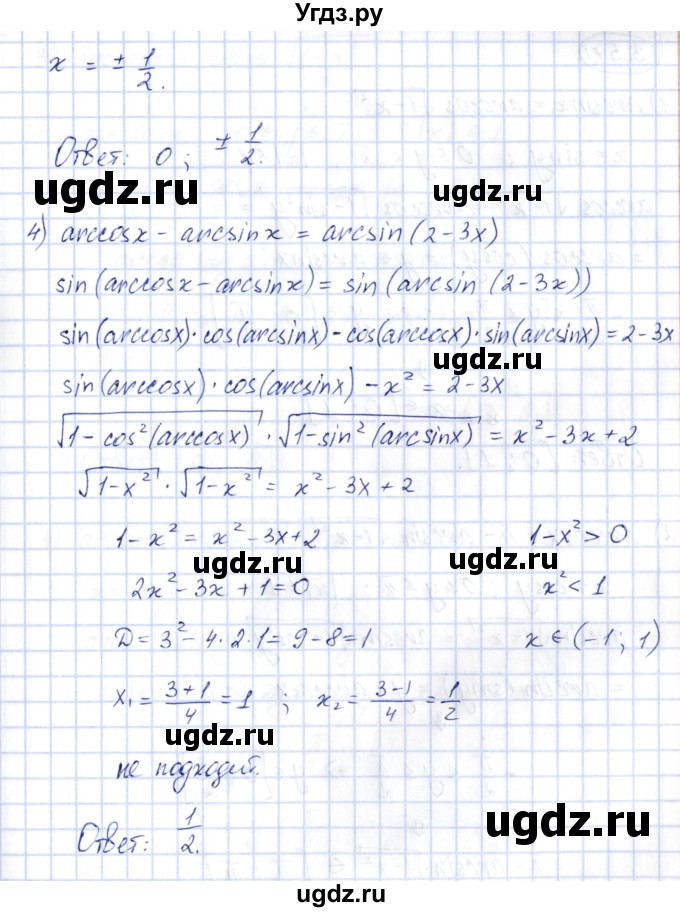 Угдз.ру
x = ± 1/2.
Ответ: 0; ± 1/2.
ugdz.ru ugdz.ru
4) arccosx - arcsinx = arcsin(2-3x)
sin(arccosx - arcsinx) = sin(arcsin(2-3x))
sin(arccosx)·cos(arcsinx) - cos(arccosx)·sin(arcsinx) = 2-3x
ugdz.ru
sin(arccosx)·cos(arcsinx) - x² = 2-3x
√(1-cos²(arccosx))·√(1-sin²(arcsinx)) = x²-3x+2
√(1-x²)·√(1-x²) = x²-3x+2
1-x² = x²-3x+2 1-x²>0
ugdz.ru ugdz.ru
2x²-3x+1=0 x²<1
D=3²-4·2·1=9-8=1 x∈(-1; 1)
x₁ = (3+1)/4 = 1; x₂ = (3-1)/4 = 1/2
ugdz.ru
не подходит.
Ответ: 1/2.
ugdz.ru ugdz.ru
ugdz.ru